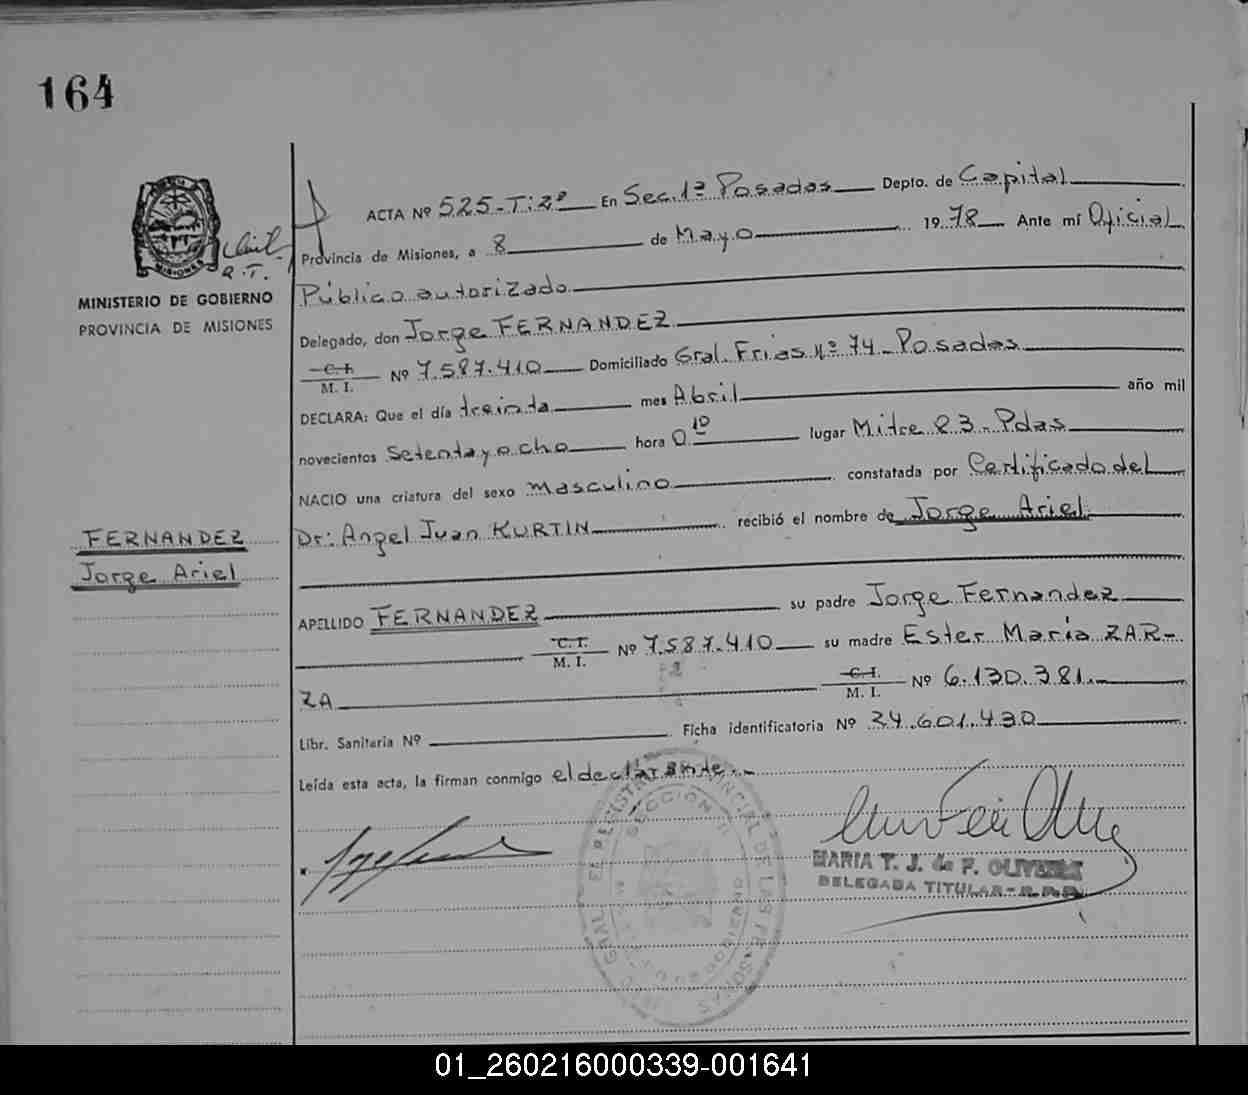 164
MINISTERIO DE GOBIERNO
PROVINCIA DE MISIONES
ACTA Nº 525-T:2º En Sec. 1ª Posadas Depto. de Capital
Provincia de Misiones, a 8 de Mayo 1978 Ante mí Oficial
Público autorizado
Delegado, don Jorge FERNANDEZ
C. I. M. I. Nº 7.587.410 Domiciliado Gral. Frias Nº 74 - Posadas
DECLARA: Que el día treinta mes Abril año mil
novecientos Setenta y ocho hora 0 10 lugar Mitre 23 - Pdas
NACIO una criatura del sexo masculino constatada por Certificado del
Dr: Angel Juan KURTIN recibió el nombre de Jorge Ariel
FERNANDEZ
Jorge Ariel
APELLIDO FERNANDEZ su padre Jorge Fernandez
C. I. M. I. Nº 7.587.410 su madre Ester María ZAR-
ZA C. I. M. I. Nº 6.130.381.
Libr. Sanitaria Nº Ficha identificatoria Nº 24.601.430
Leída esta acta, la firman conmigo el declarande
MARIA T. J. de F. OLIVERA
DELEGADA TITULAR - R.P.P.
SECCION
01_260216000339-001641